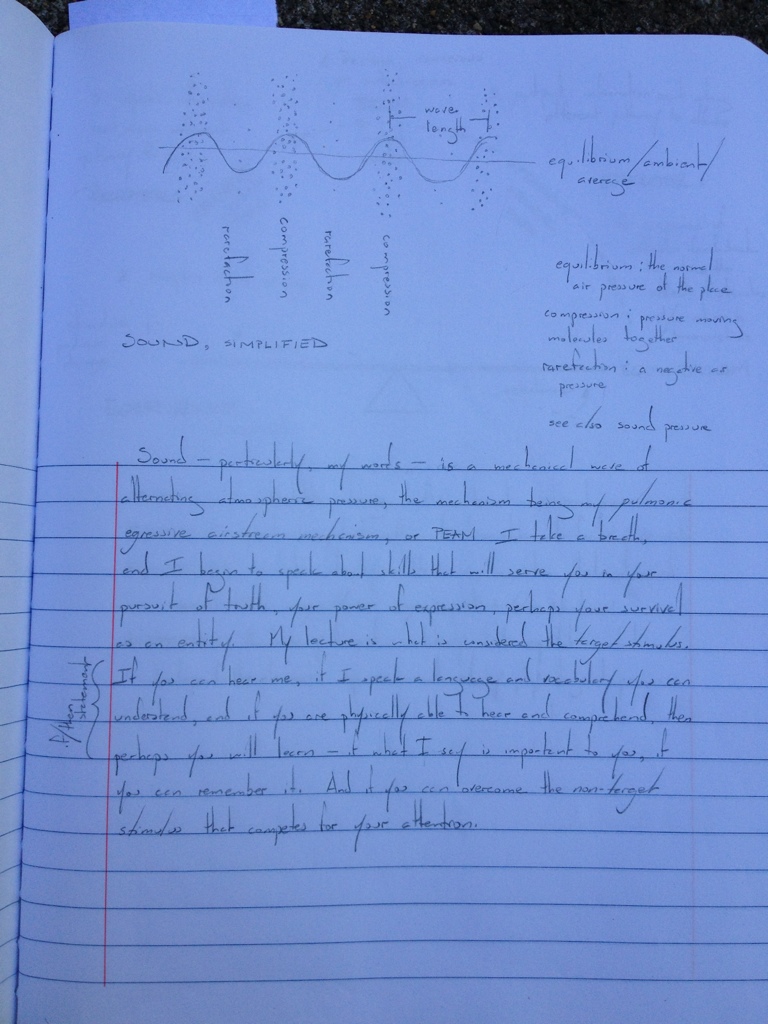 wave
length
equilibrium/ambient/
average
rarefaction
compression
rarefaction
compression
equilibrium: the normal
air pressure of the place
compression: pressure moving
molecules together
rarefaction: a negative air
pressure
see also sound pressure
SOUND, SIMPLIFIED
Sound – particularly, my words – is a mechanical wave of
alternating atmospheric pressure, the mechanism being my pulmonic
egressive airstream mechanism, or PEAM. I take a breath,
and I begin to speak about skills that will serve you in your
pursuit of truth, your power of expression, perhaps your survival
as an entity. My lecture is what is considered the target stimulus.
If you can hear me, if I speak a language and vocabulary you can
understand, and if you are physically able to hear and comprehend, then
perhaps you will learn – if what I say is important to you, if
you can remember it. And if you can overcome the non-target
stimulus that competes for your attention.
if/then
statement